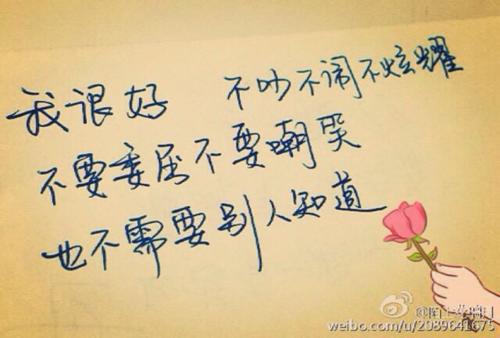 我很好 不吵不闹不炫耀
不要委屈不要嘲笑
也不需要别人知道
weibo.com/u/2089641675